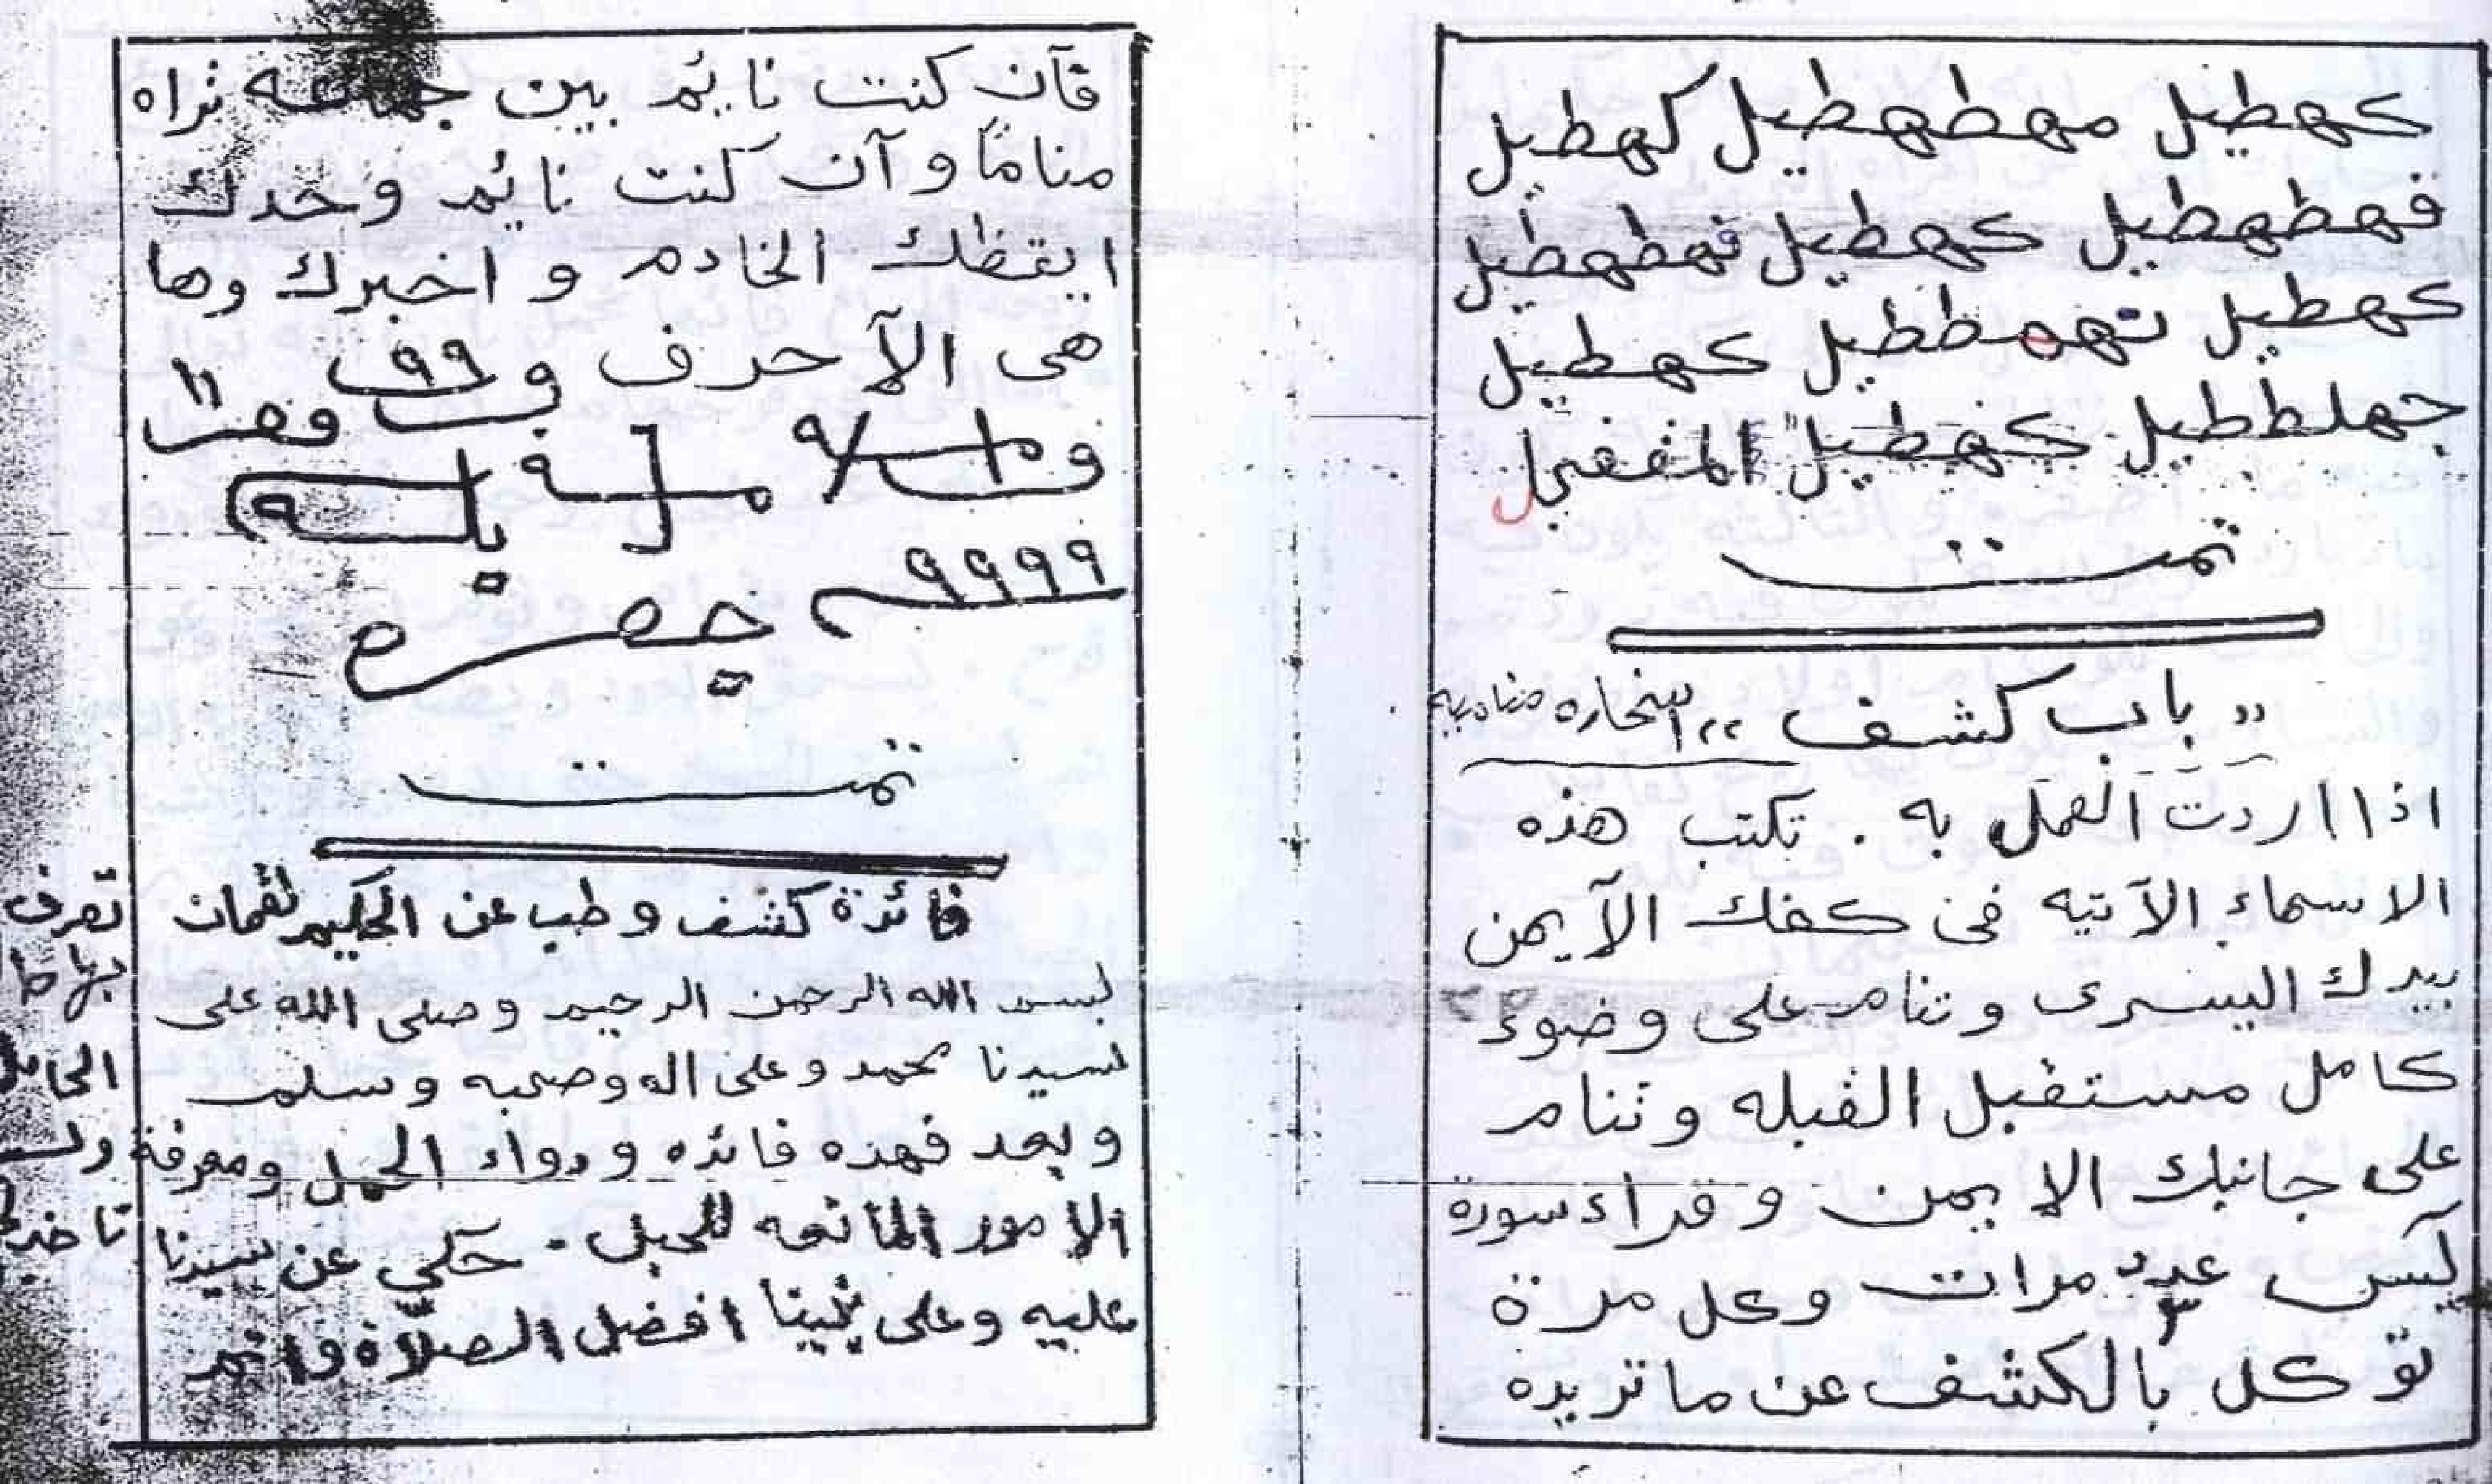 كهطيل مهطهطيل كهطيل
فهطهطيل كهطيل فهطهطيل
كهطيل نههططيل كهطيل
جهلططيل كهطيل
تمت
"باب كشف" استخاره مناميه
اذا اردت العمل به . تكتب هذه
الاسماء الآتيه فى كفك الآيمن
بيدك اليسرى وتنام على وضوء
كامل مستقبل القبله وتنام
على جانبك الايمن وقراء سورة
يٓس عدد ٣ مرات وكل مرة
توكل بالكشف عن ما تريده
فآن كنت نايم بين جماعه تراه
مناماً وآن كنت نايم وحدك
ايقظك الخادم و اخبرك وها
هى الآحرف
٩٩٩٩
تمت
فائدة كشف وطب عن الحكيم لقمان
بسم الله الرحمن الرحيم وصلى الله على
سيدنا محمد وعلى اله وصحبه وسلم
وبعد فهذه فائده ودواء الحمل ومعرفة
الامور المانعه للحبل . حكي عن سيدنا
عليه وعلى نبينا افضل الصلاة
تعرف
بها
الحامل